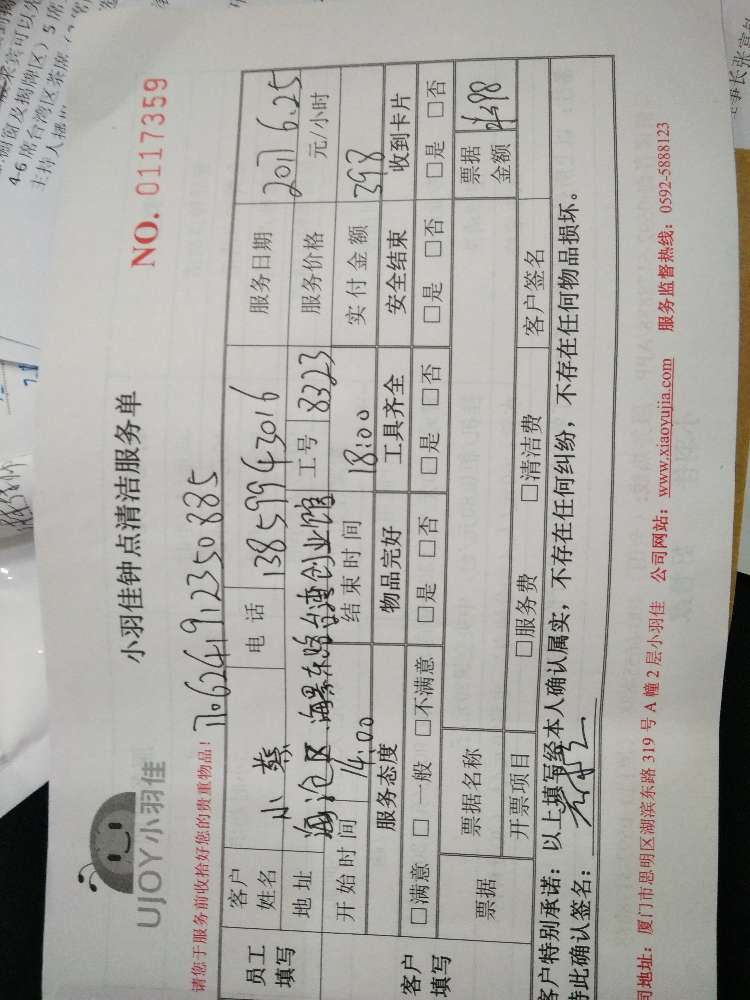 UJOY小羽佳
小羽佳钟点清洁服务单
NO. 0117359
请您于服务前收拾好您的贵重物品！
1706241912350885
员工填写
客户姓名 小燕 电话 13859943016 服务日期 2017 6.25
地址 海沧区 海景东路台湾创业馆 工号 8323 服务价格 元/小时
开始时间 14:00 结束时间 18:00 实付金额 398
客户填写
服务态度 物品完好 工具齐全 安全结束 收到卡片
□满意 □一般 □不满意 □是 □否 □是 □否 □是 □否 □是 □否
票据 票据名称 票据金额
开票项目 □服务费 □清洁费 客户签名
客户特别承诺：以上填写经本人确认属实，不存在任何纠纷，不存在任何物品损坏。
特此确认签名：
司地址：厦门市思明区湖滨东路 319 号 A 幢 2 层小羽佳 公司网站：www.xiaoyujia.com 服务监督热线：0592-5888123
4-6 席台湾区茶席